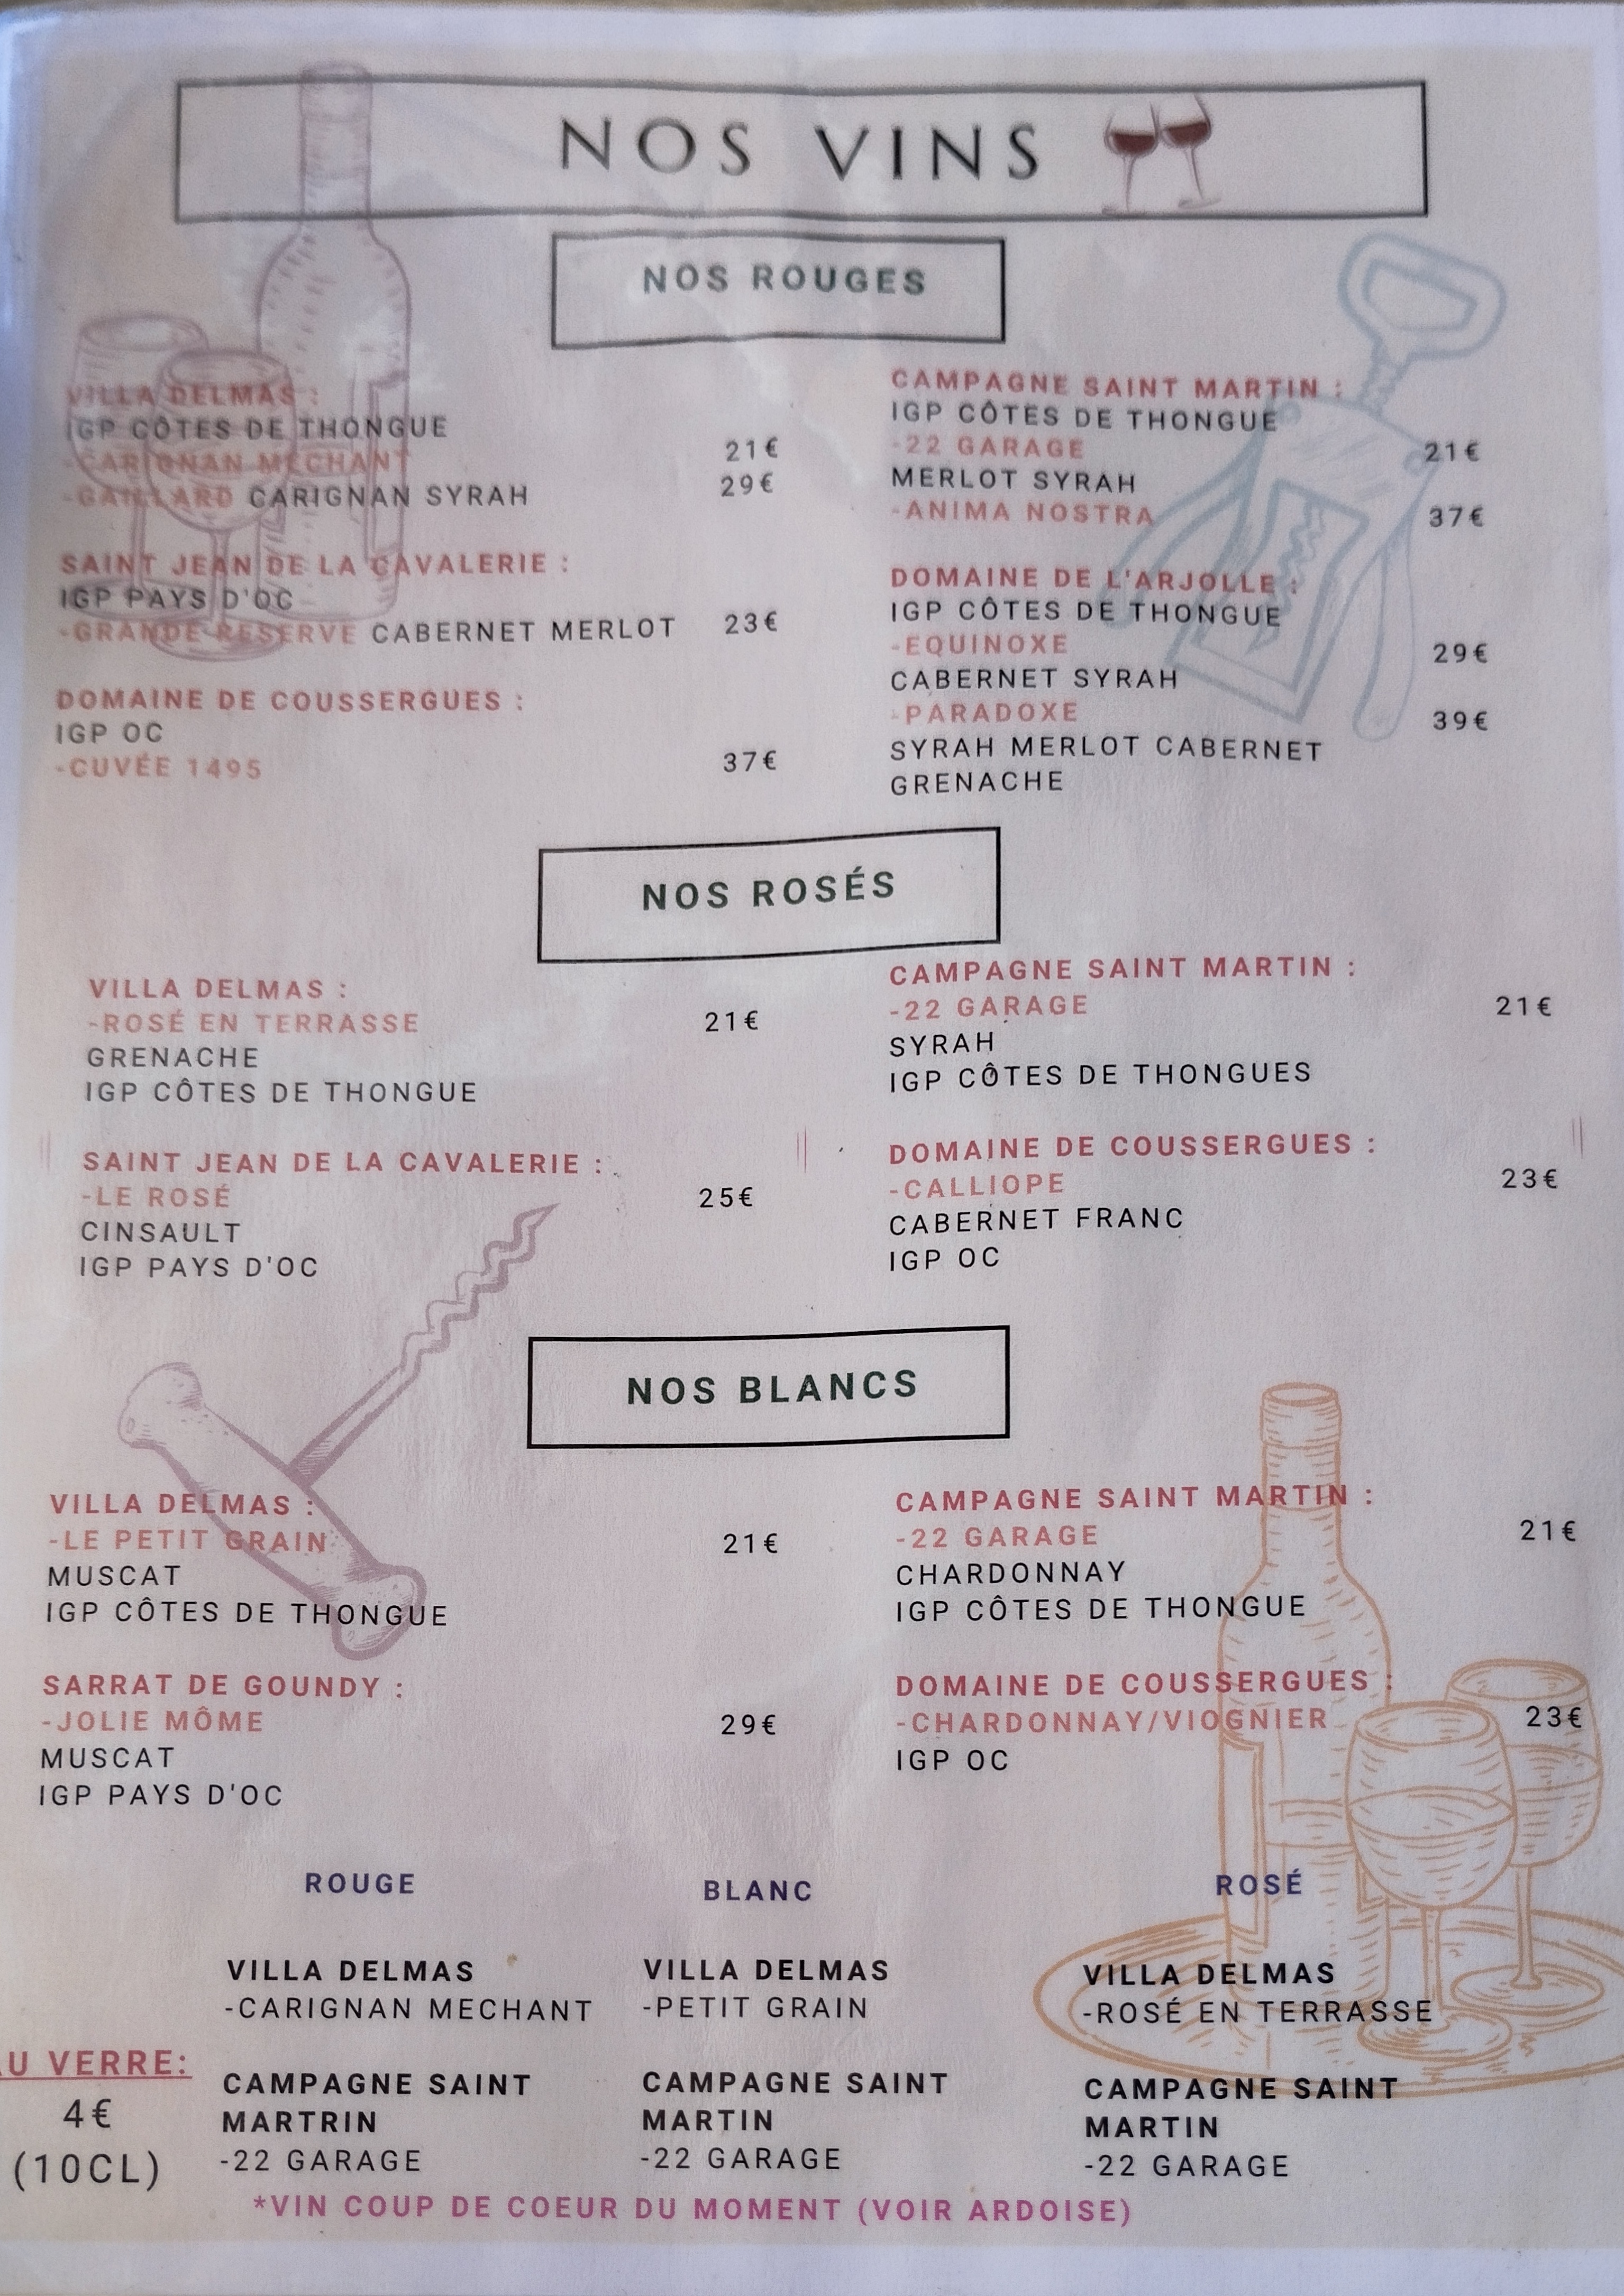 NOS VINS
NOS ROUGES
VILLA DELMAS :
IGP CÔTES DE THONGUE
-CARIGNAN MECHANT 21€
-GAILLARD CARIGNAN SYRAH 29€
SAINT JEAN DE LA CAVALERIE :
IGP PAYS D'OC
-GRANDE RESERVE CABERNET MERLOT 23€
DOMAINE DE COUSSERGUES :
IGP OC
-CUVÉE 1495 37€
CAMPAGNE SAINT MARTIN :
IGP CÔTES DE THONGUE
-22 GARAGE 21€
MERLOT SYRAH
-ANIMA NOSTRA 37€
DOMAINE DE L'ARJOLLE :
IGP CÔTES DE THONGUE
-EQUINOXE 29€
CABERNET SYRAH
-PARADOXE 39€
SYRAH MERLOT CABERNET
GRENACHE
NOS ROSÉS
VILLA DELMAS :
-ROSÉ EN TERRASSE 21€
GRENACHE
IGP CÔTES DE THONGUE
SAINT JEAN DE LA CAVALERIE :
-LE ROSÉ 25€
CINSAULT
IGP PAYS D'OC
CAMPAGNE SAINT MARTIN :
-22 GARAGE 21€
SYRAH
IGP CÔTES DE THONGUES
DOMAINE DE COUSSERGUES :
-CALLIOPE 23€
CABERNET FRANC
IGP OC
NOS BLANCS
VILLA DELMAS :
-LE PETIT GRAIN 21€
MUSCAT
IGP CÔTES DE THONGUE
SARRAT DE GOUNDY :
-JOLIE MÔME 29€
MUSCAT
IGP PAYS D'OC
CAMPAGNE SAINT MARTIN :
-22 GARAGE 21€
CHARDONNAY
IGP CÔTES DE THONGUE
DOMAINE DE COUSSERGUES :
-CHARDONNAY/VIOGNIER 23€
IGP OC
AU VERRE:
4€
(10CL)
ROUGE
VILLA DELMAS
-CARIGNAN MECHANT
CAMPAGNE SAINT
MARTRIN
-22 GARAGE
BLANC
VILLA DELMAS
-PETIT GRAIN
CAMPAGNE SAINT
MARTIN
-22 GARAGE
ROSÉ
VILLA DELMAS
-ROSÉ EN TERRASSE
CAMPAGNE SAINT
MARTIN
-22 GARAGE
*VIN COUP DE COEUR DU MOMENT (VOIR ARDOISE)